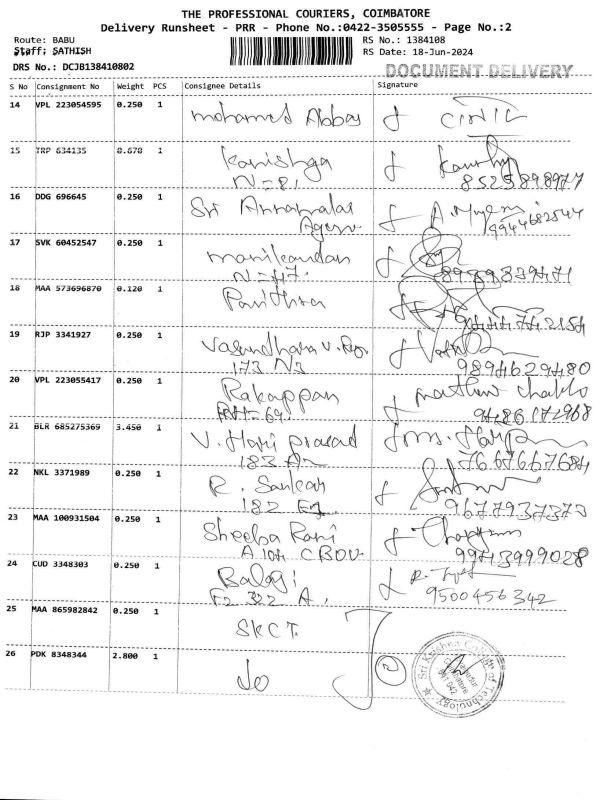 THE PROFESSIONAL COURIERS, COIMBATORE
Delivery Runsheet - PRR - Phone No.:0422-3505555 - Page No.:2
Route: BABU
RS No.: 1384108
Staff: SATHISH
RS Date: 18-Jun-2024
DRS No.: DCJB138410802
DOCUMENT DELIVERY
S No Consignment No Weight PCS Consignee Details Signature
14 VPL 223054595 0.250 1 mohamed Abbas
15 TRP 634135 0.670 1 Kanishga
N=81 8525898977
16 DDG 696645 0.250 1 Sri Annamalai
Agency 9944682544
17 SVK 60452547 0.250 1 manikandan
N=47. 8939839471
18 MAA 573696870 0.120 1 Pavithra
19 RJP 3341927 0.250 1 Vasundhara
173 N3 9894629480
20 VPL 223055417 0.250 1 Rakappan
9486172968
21 BLR 685275369 3.450 1 V. Hari prasad
183 7667667684
22 NKL 3371989 0.250 1 R. Sankar
182 9677937373
23 MAA 100931504 0.250 1 Sheeba Rani
A 104 9943999028
24 CUD 3348303 0.250 1 Balaji
F2 322 A, 9500456342
25 MAA 865982842 0.250 1 SKCT.
26 PDK 8348344 2.800 1 do
Sri Krishna College of Technology
Coimbatore
641 042